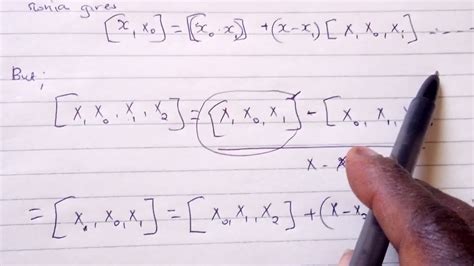 gives
[x, x₀] = [x₀, x₁] + (x - x₁) [x, x₀, x₁] ......
But;
[x, x₀, x₁, x₂] = [x, x₀, x₁] - [x₀, x₁,
x - x
= [x, x₀, x₁] = [x₀, x₁, x₂] + (x - x₂